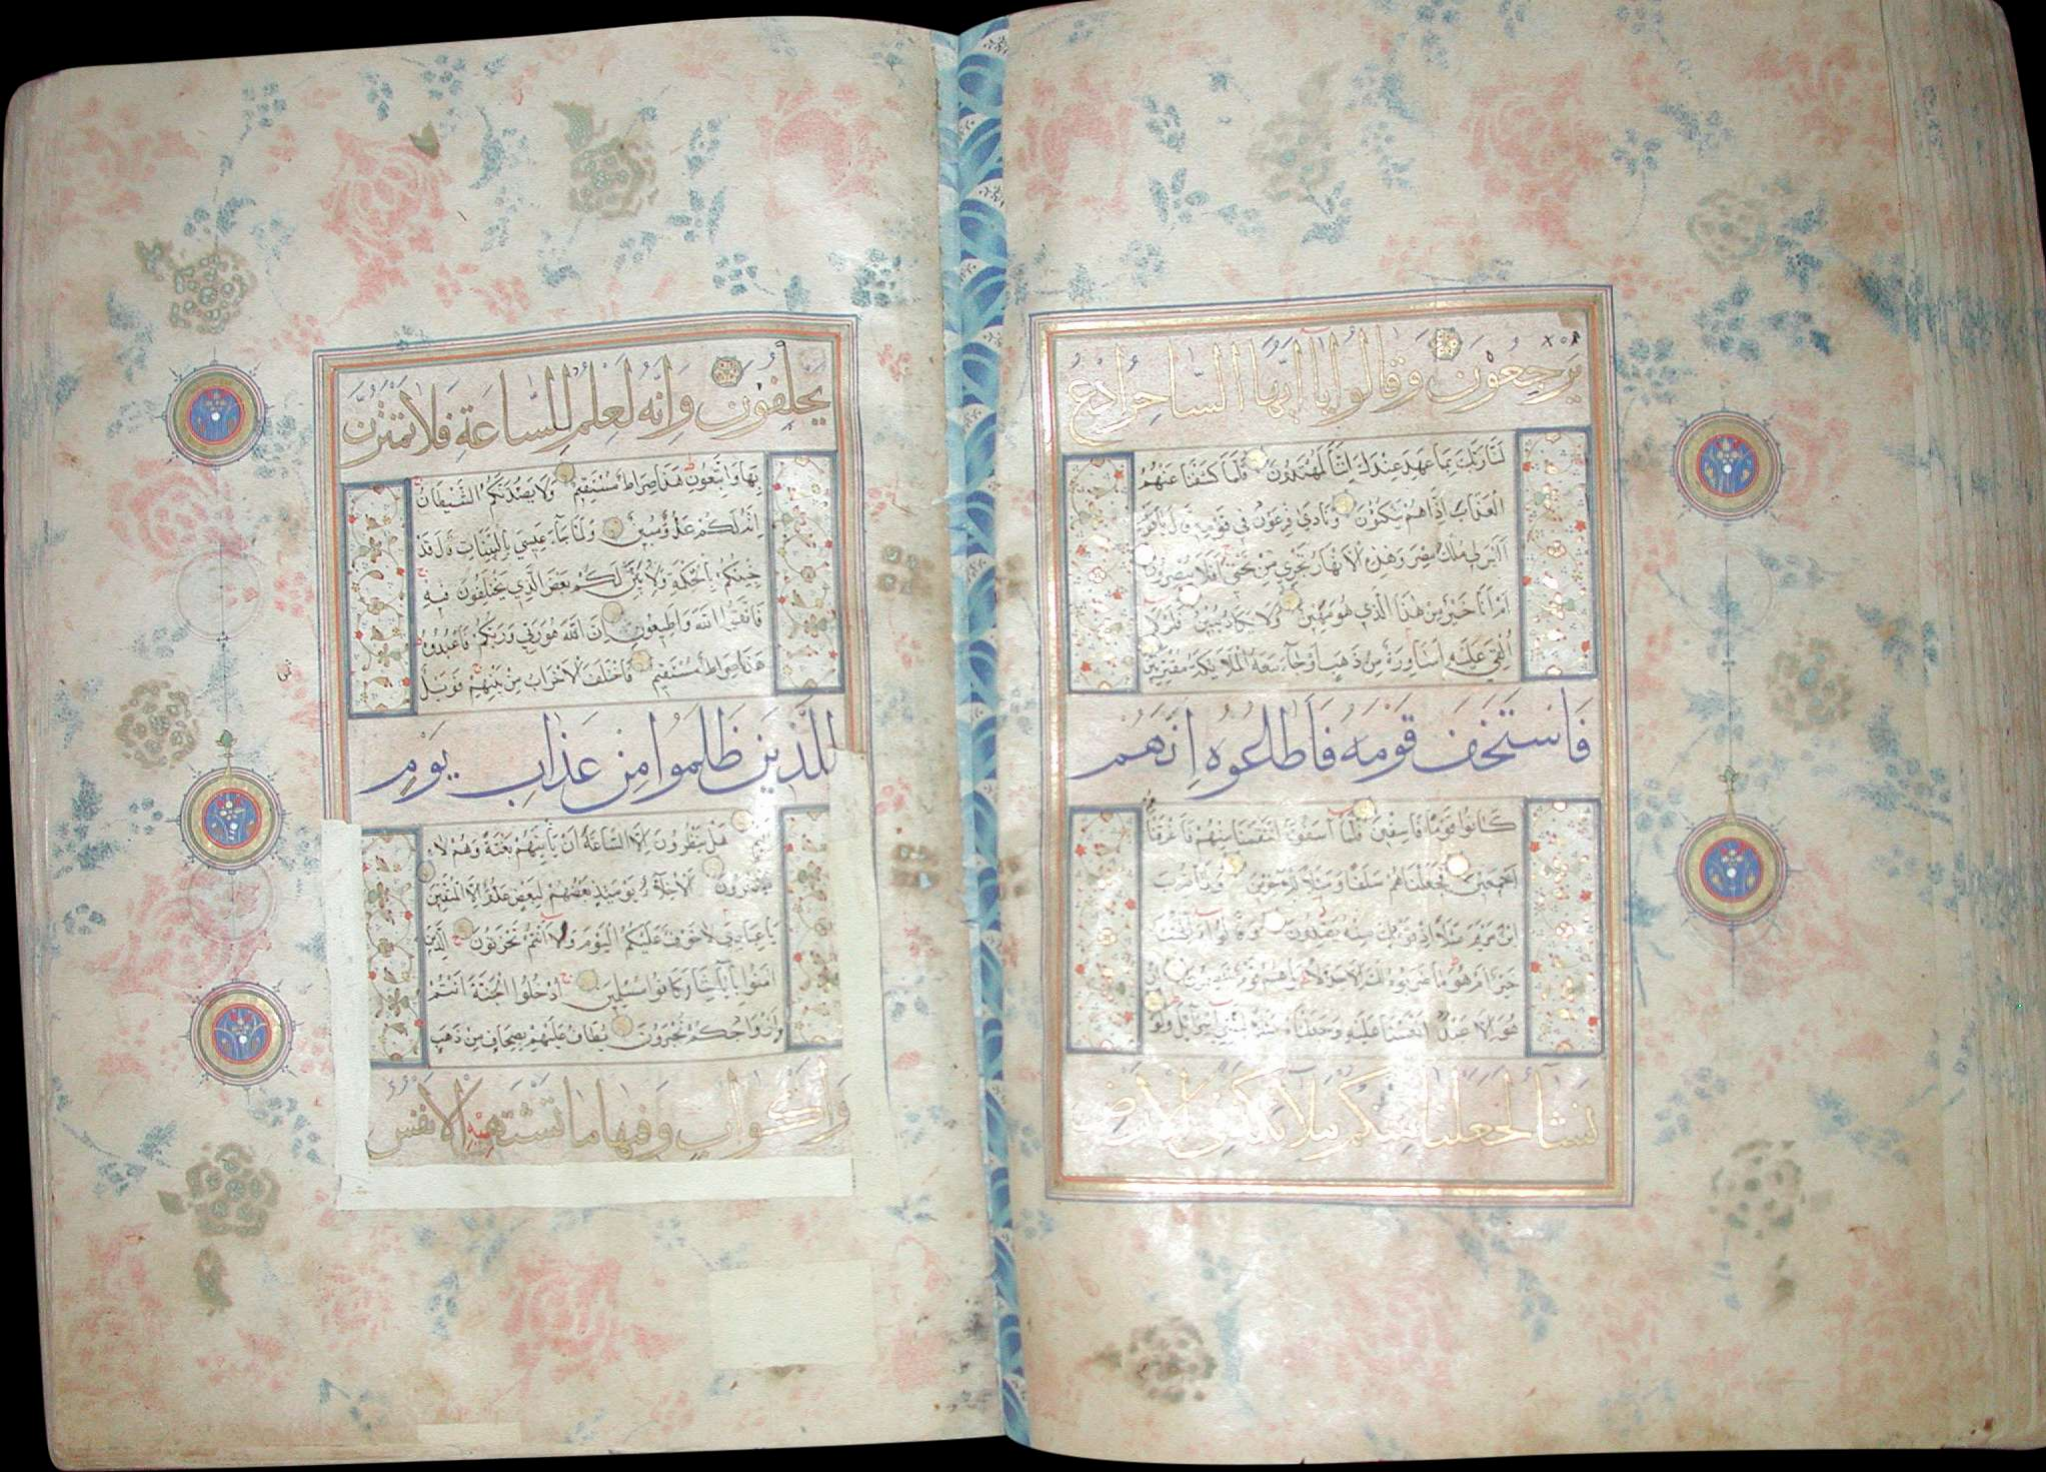 يرجعون وقالوا يا ايها الساحر ادع
لنا ربك بما عهد عندك اننا لمهتدون فلما كشفنا عنهم
العذاب اذا هم ينكثون ونادى فرعون في قومه قال يا قوم
اليس لي ملك مصر وهذه الانهار تجري من تحتي افلا تبصرون
ام انا خير من هذا الذي هو مهين ولا يكاد يبين فلولا
القي عليه اساورة من ذهب او جاء معه الملائكة مقترنين
فاستخف قومه فاطاعوه انهم
كانوا قوما فاسقين فلما اسفونا انتقمنا منهم فاغرقناهم
اجمعين فجعلناهم سلفا ومثلا للاخرين ولما ضرب
ابن مريم مثلا اذا قومك منه يصدون وقالوا االهتنا
خير ام هو ما ضربوه لك الا جدلا بل هم قوم خصمون ان
هو الا عبد انعمنا عليه وجعلناه مثلا لبني اسرائيل ولو
نشاء لجعلنا منكم ملائكة في الارض
يخلفون وانه لعلم للساعة فلا تمترن
بها واتبعون هذا صراط مستقيم ولا يصدنكم الشيطان
انه لكم عدو مبين ولما جاء عيسى بالبينات قال قد
جئتكم بالحكمة ولابين لكم بعض الذي تختلفون فيه
فاتقوا الله واطيعون ان الله هو ربي وربكم فاعبدوه
هذا صراط مستقيم فاختلف الاحزاب من بينهم فويل
للذين ظلموا من عذاب يوم
هل ينظرون الا الساعة ان تاتيهم بغتة وهم لا
يشعرون الاخلاء يومئذ بعضهم لبعض عدو الا المتقين
يا عبادي لا خوف عليكم اليوم ولا انتم تحزنون الذين
امنوا باياتنا وكانوا مسلمين ادخلوا الجنة انتم
وازواجكم تحبرون يطاف عليهم بصحاف من ذهب
واكواب وفيها ما تشتهيه الانفس